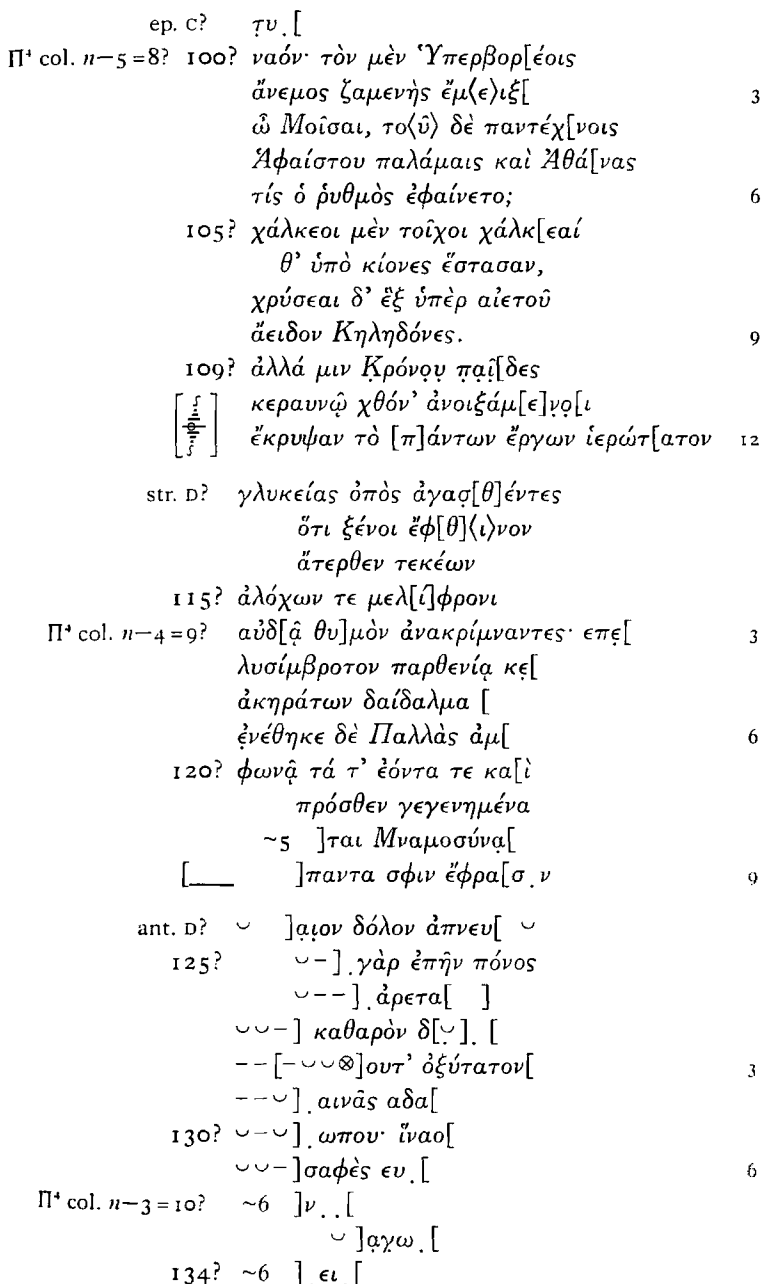 ep. C? τ̣υ ̣[
Π⁴ col. n−5 =8? 100? ναόν· τὸν μὲν Ὑπερβορ[έοις
ἄνεμος ζαμενὴς ἔμ⟨ε⟩ιξ[ 3
ὦ Μοῖσαι, το⟨ῦ⟩ δὲ παντέχ[νοις
Ἁφαίστου παλάμαις καὶ Ἀθά[νας
τίς ὁ ῥυθμὸς ἐφαίνετο; 6
105? χάλκεοι μὲν τοῖχοι χάλκ[εαί
θ’ ὑπὸ κίονες ἕστασαν,
χρύσεαι δ’ ἓξ ὑπὲρ αἰετοῦ
ἄειδον Κηληδόνες. 9
109? ἀλλά μιν Κ̣ρόνο̣υ̣ π̣α̣ῖ̣[δες
κεραυνῷ χθόν’ ἀνοιξάμ[ε]ν̣ο̣[ι
ἔκρυψαν τὸ [π]άντων ἔργων ἱερώτ[ατον 12
str. D? γλυκείας ὀπὸς ἀγασ̣[θ]έντες
ὅτι ξένοι ἔφ[θ]⟨ι⟩νον
ἄτερθεν τεκέων
115? ἀλόχων τε μελ[ί]φρονι
Π⁴ col. n−4 =9? αὐδ[ᾷ θυ]μὸν ἀνακρίμναντες· επε̣[ 3
λυσίμβροτον παρθενίᾳ κε̣[
ἀκηράτων δαίδαλμα [
ἐ̣νέθηκε δὲ Παλλὰς ἀμ[ 6
120? φωνᾷ τά τ’ ἐόντα τε κα[ὶ
πρόσθεν γεγενημένα
~5 ]ται Μναμοσύνα̣[
[___ ]παντα σφιν ἔφρα[σ ̣ν 9
ant. D? ⏑ ]α̣ι̣ον δόλον ἀπνευ[ ⏑
125? ⏑−] ̣γὰρ ἐπῆν πόνος
⏑−−] ̣ἀρετα[ ]
⏑⏑−] καθαρὸν δ[⏑̣] ̣ [
−−[−⏑⏑⊗]ουτ’ ὀξύτατον[ 3
−−⏑] ̣αινᾶς αδα[
130? ⏑−⏑] ̣ωπου· ἵναο[
⏑⏑−]σαφὲς ευ ̣[ 6
Π⁴ col. n−3 =10? ~6 ]ν ̣ ̣[
⏑ ]α̣γ̣ω ̣[
134? ~6 ] ει ̣[